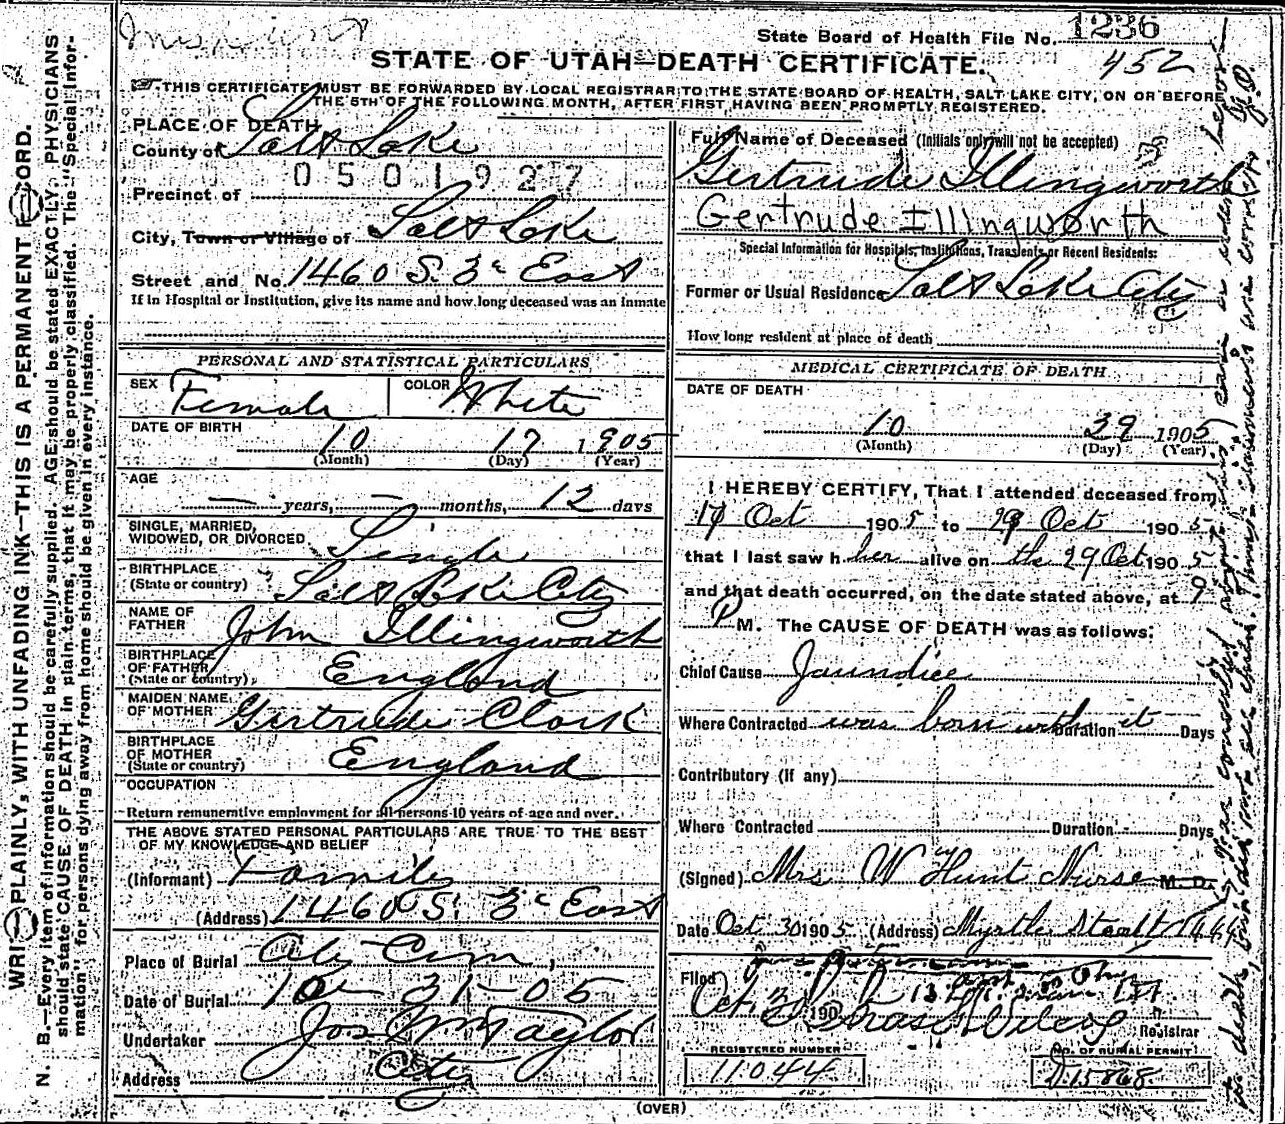 State Board of Health File No. 1236
452
STATE OF UTAH—DEATH CERTIFICATE.
THIS CERTIFICATE MUST BE FORWARDED BY LOCAL REGISTRAR TO THE STATE BOARD OF HEALTH, SALT LAKE CITY, ON OR BEFORE
THE 5TH OF THE FOLLOWING MONTH, AFTER FIRST HAVING BEEN PROMPTLY REGISTERED.
PLACE OF DEATH
County of Salt Lake
0501927
Precinct of
City, Town or Village of Salt Lake
Street and No. 1460 S. 3d East
If in Hospital or Institution, give its name and how long deceased was an inmate
PERSONAL AND STATISTICAL PARTICULARS
SEX Female COLOR White
DATE OF BIRTH
10 17 1905
(Month) (Day) (Year)
AGE
— years, — months, 12 days
SINGLE, MARRIED,
WIDOWED, OR DIVORCED Single
BIRTHPLACE
(State or country) Salt Lake City
NAME OF
FATHER John Illingworth
BIRTHPLACE
OF FATHER
(State or country) England
MAIDEN NAME
OF MOTHER Gertrude Clark
BIRTHPLACE
OF MOTHER
(State or country) England
OCCUPATION
Return remunerative employment for all persons 10 years of age and over.
THE ABOVE STATED PERSONAL PARTICULARS ARE TRUE TO THE BEST
OF MY KNOWLEDGE AND BELIEF
(Informant) Family
(Address) 1460 S. 3d East
Place of Burial City Cem,
Date of Burial 10-31-05
Undertaker Jos Wm Taylor
Address City
Full Name of Deceased (Initials only will not be accepted)
Gertrude Illingworth
Gertrude Illingworth
Special Information for Hospitals, Institutions, Transients or Recent Residents:
Former or Usual Residence Salt Lake City
How long resident at place of death
MEDICAL CERTIFICATE OF DEATH
DATE OF DEATH
10 29 1905
(Month) (Day) (Year)
I HEREBY CERTIFY, That I attended deceased from
17 Oct 1905 to 29 Oct 1905
that I last saw h her alive on the 29 Oct 1905
and that death occurred, on the date stated above, at 9
P M. The CAUSE OF DEATH was as follows:
Chief Cause Jaundice
Where Contracted was born with it Duration Days
Contributory (If any)
Where Contracted Duration Days
(Signed) Mrs W Hunt Nurse M. D.
Date Oct 30 1905 (Address) Myrtle
Filed
Oct. 30 190 Registrar
REGISTERED NUMBER
11044
NO. OF BURIAL PERMIT
D15868
(OVER)
WRITE PLAINLY, WITH UNFADING INK—THIS IS A PERMANENT RECORD.
N. B.—Every item of information should be carefully supplied. AGE should be stated EXACTLY. PHYSICIANS
should state CAUSE OF DEATH in plain terms, that it may be properly classified. The "Special Infor-
mation" for persons dying away from home should be given in every instance.